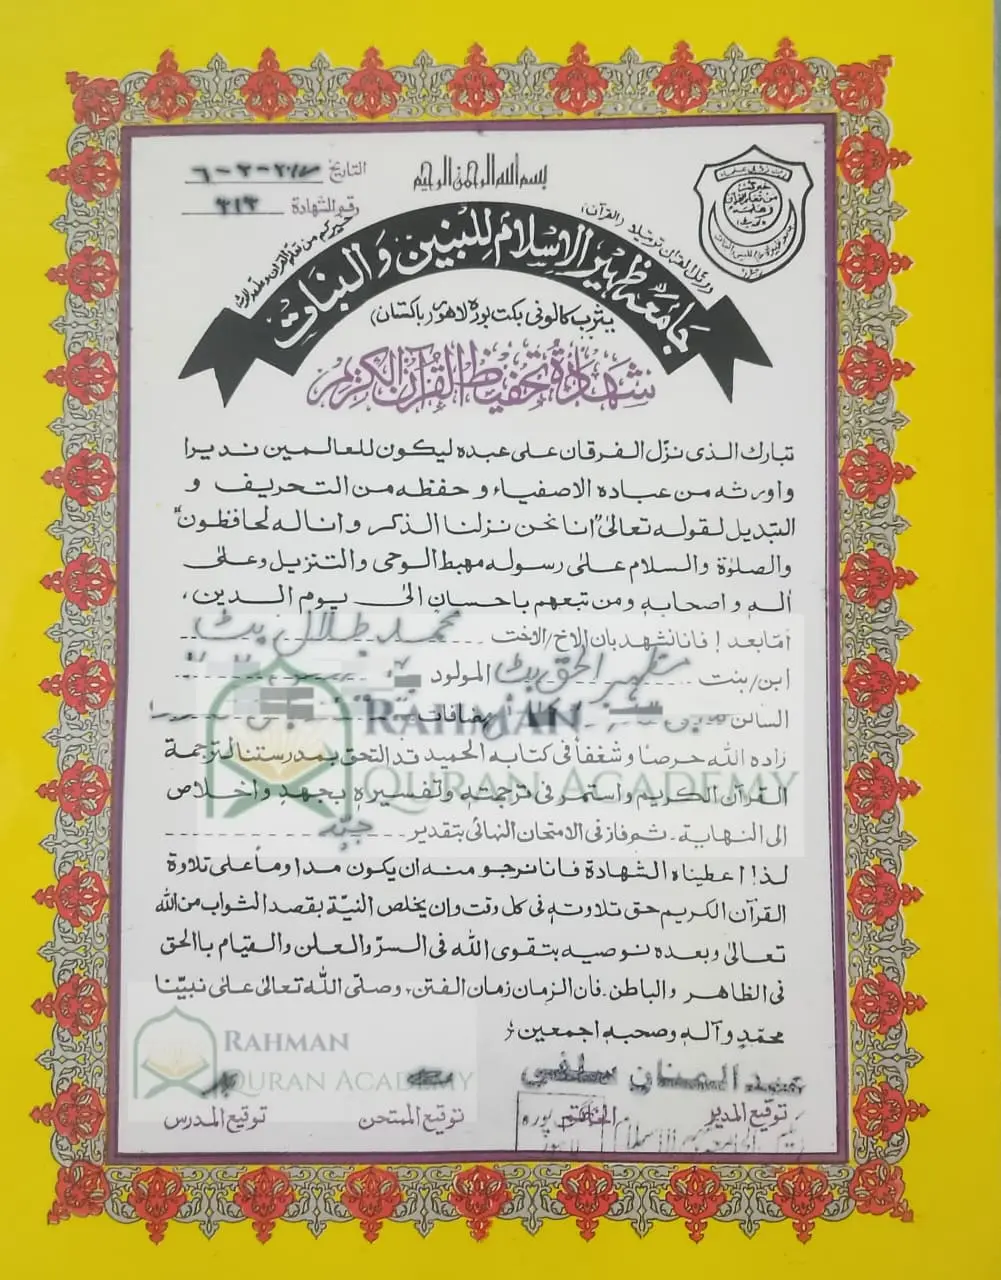 بسم الله الرحمن الرحيم
التاريخ
رقم الشهادة ٣١٣
ورتل القرآن ترتيلا (القرآن)
خيركم من تعلم القرآن وعلمه
جامعه ظهير الاسلام للبنين والبنات
يثرب كالونى بگت پوره لاهور (پاكستان)
شهادة تحفيظ القرآن الكريم
تبارك الذى نزّل الفرقان على عبده ليكون للعالمين نديرا
واورثه من عباده الاصفياء وحفظه من التحريف و
التبديل لقوله تعالىٰ "انا نحن نزلنا الذكر وانا له لحافظون"
والصلوٰة والسلام علىٰ رسوله مهبط الوحى والتنزيل وعلىٰ
اٰله واصحابه ومن تبعهم باحسان الىٰ يوم الدين،
امّا بعد! فانا نشهد بان الاخ/الاخت محمد طلال بٹ
ابن/بنت مظهر الحق بٹ المولود
الساكن
زاده الله حرصًا وشغفًا فى كتابه الحميد قد التحق بمدرستنا لترجمة
القرآن الكريم واستمر فى ترجمته وتفسيره بجهدٍ واخلاص
الى النهاية۔ ثم فاز فى الامتحان النهائى بتقدير جيّد
لذا! اعطيناه الشهادة فانا نرجو منه ان يكون مداومًا على تلاوة
القرآن الكريم حق تلاوته فى كل وقت وان يخلص النيّة بقصد الثواب من الله
تعالىٰ وبعده نوصيه بتقوى الله فى السرّ والعلن والقيام باالحق
فى الظاهر والباطن۔ فان الزمان زمان الفتن، وصلّى الله تعالىٰ علىٰ نبيّنا
محمّدٍ وآله وصحبه اجمعين
عبد المنان سلفى
توقيع المدير
الخاتم
توقيع الممتحن
توقيع المدرس
RAHMAN
QURAN ACADEMY
RAHMAN
QURAN ACADEMY